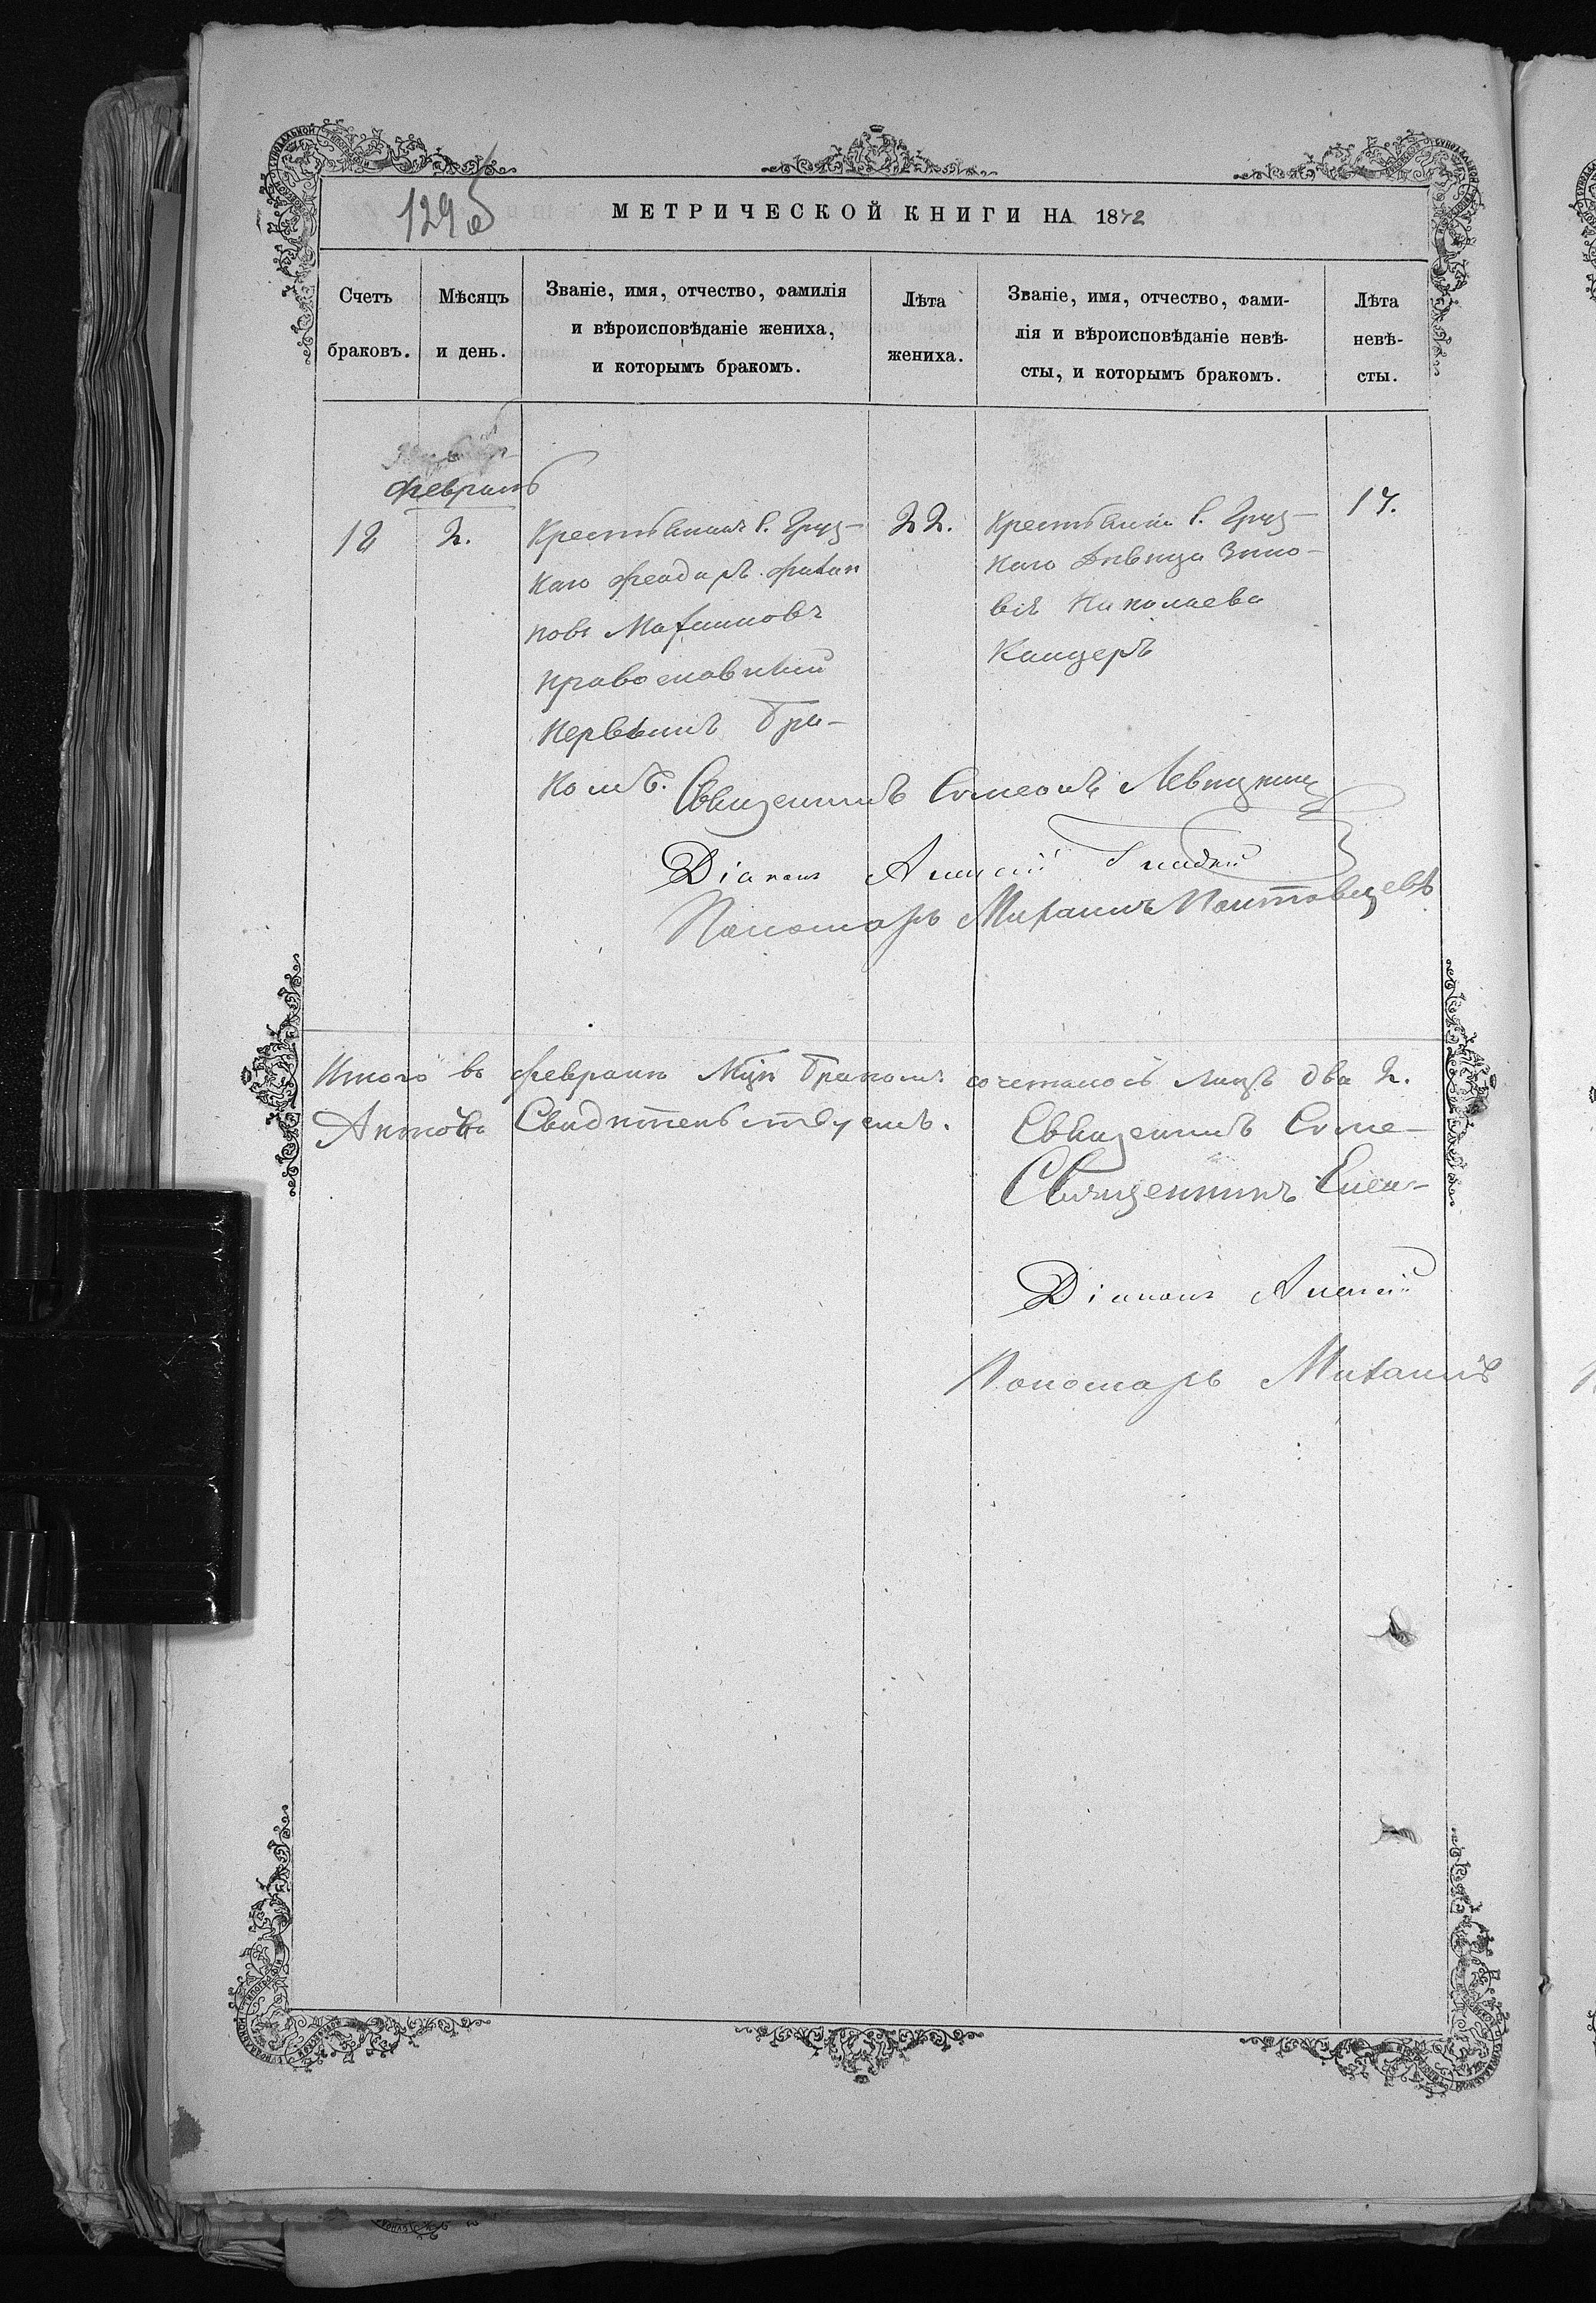 129 б
МЕТРИЧЕСКОЙ КНИГИ НА 1872
Счетъ браковъ.
Мѣсяцъ и день.
Званіе, имя, отчество, фамилія
и вѣроисповѣданіе жениха,
и которымъ бракомъ.
Лѣта
жениха.
Званіе, имя, отчество, фами-
лія и вѣроисповѣданіе невѣ-
сты, и которымъ бракомъ.
Лѣта
невѣ-
сты.
Февраль
12
2.
Крестьянинъ с. Груз-
каго Феодоръ Филип
повъ Матвіиновъ
православный
первымъ бра-
комъ.
22.
Крестьянка с. Груз-
каго Дѣвица Зино-
вія Николаева
Канцеръ
17.
Священникъ Симеонъ Левицкий
Діаконъ Алексій
Пономарь Михаилъ Полтавцевъ
Итого въ февралѣ м-цѣ бракомъ сочеталось лицъ два 2.
Актовъ Свидѣтельствуемъ.
Священникъ Симе-
Священникъ
Діаконъ Алексій
Пономарь Михаилъ